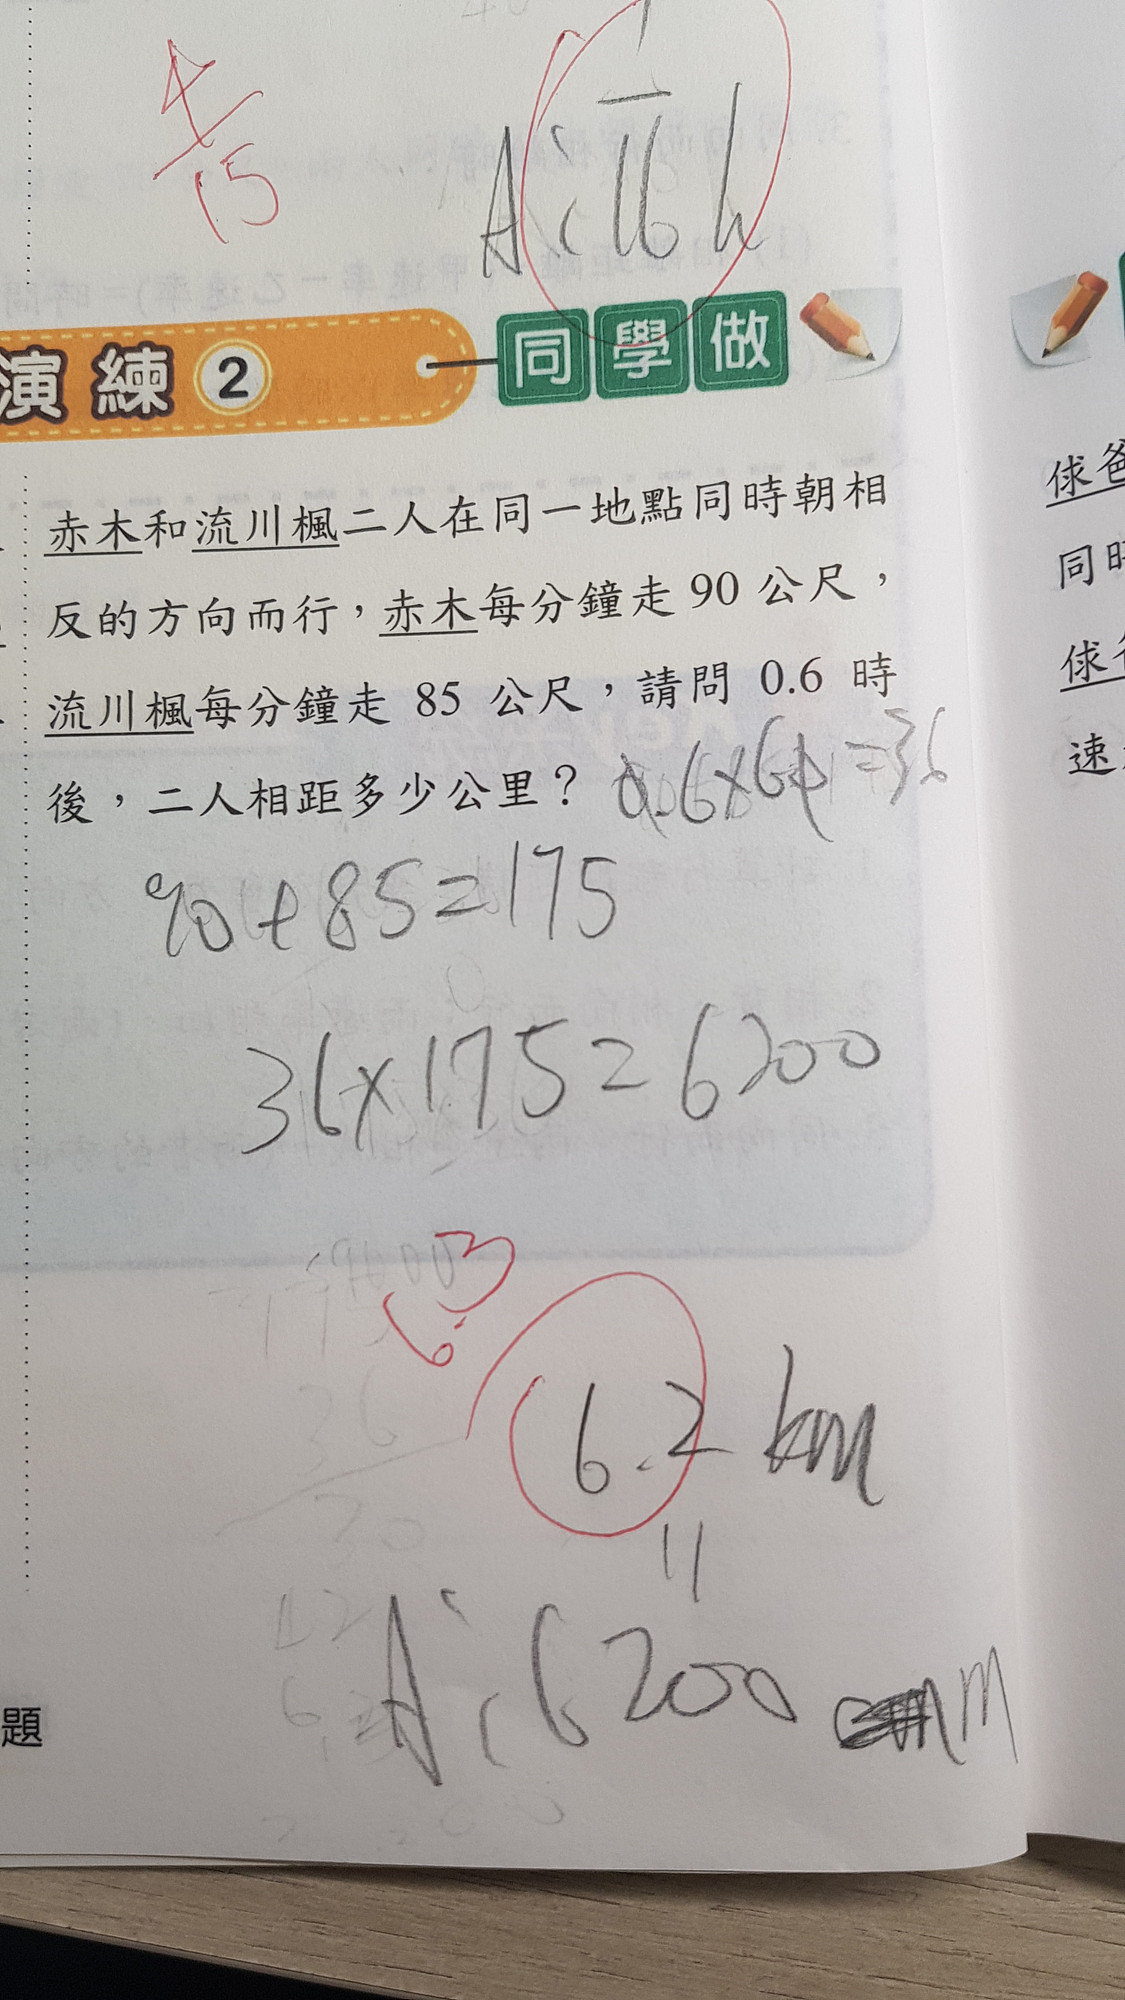 4
15
1
A: 16 h
演練 2 同學做
赤木和流川楓二人在同一地點同時朝相
反的方向而行，赤木每分鐘走 90 公尺，
流川楓每分鐘走 85 公尺，請問 0.6 時
後，二人相距多少公里？ 0.6×60=36
90+85=175
36×175=6200
6.3
6.2 km
11
A: 6200 m
題
俅爸
同時
俅爸
速